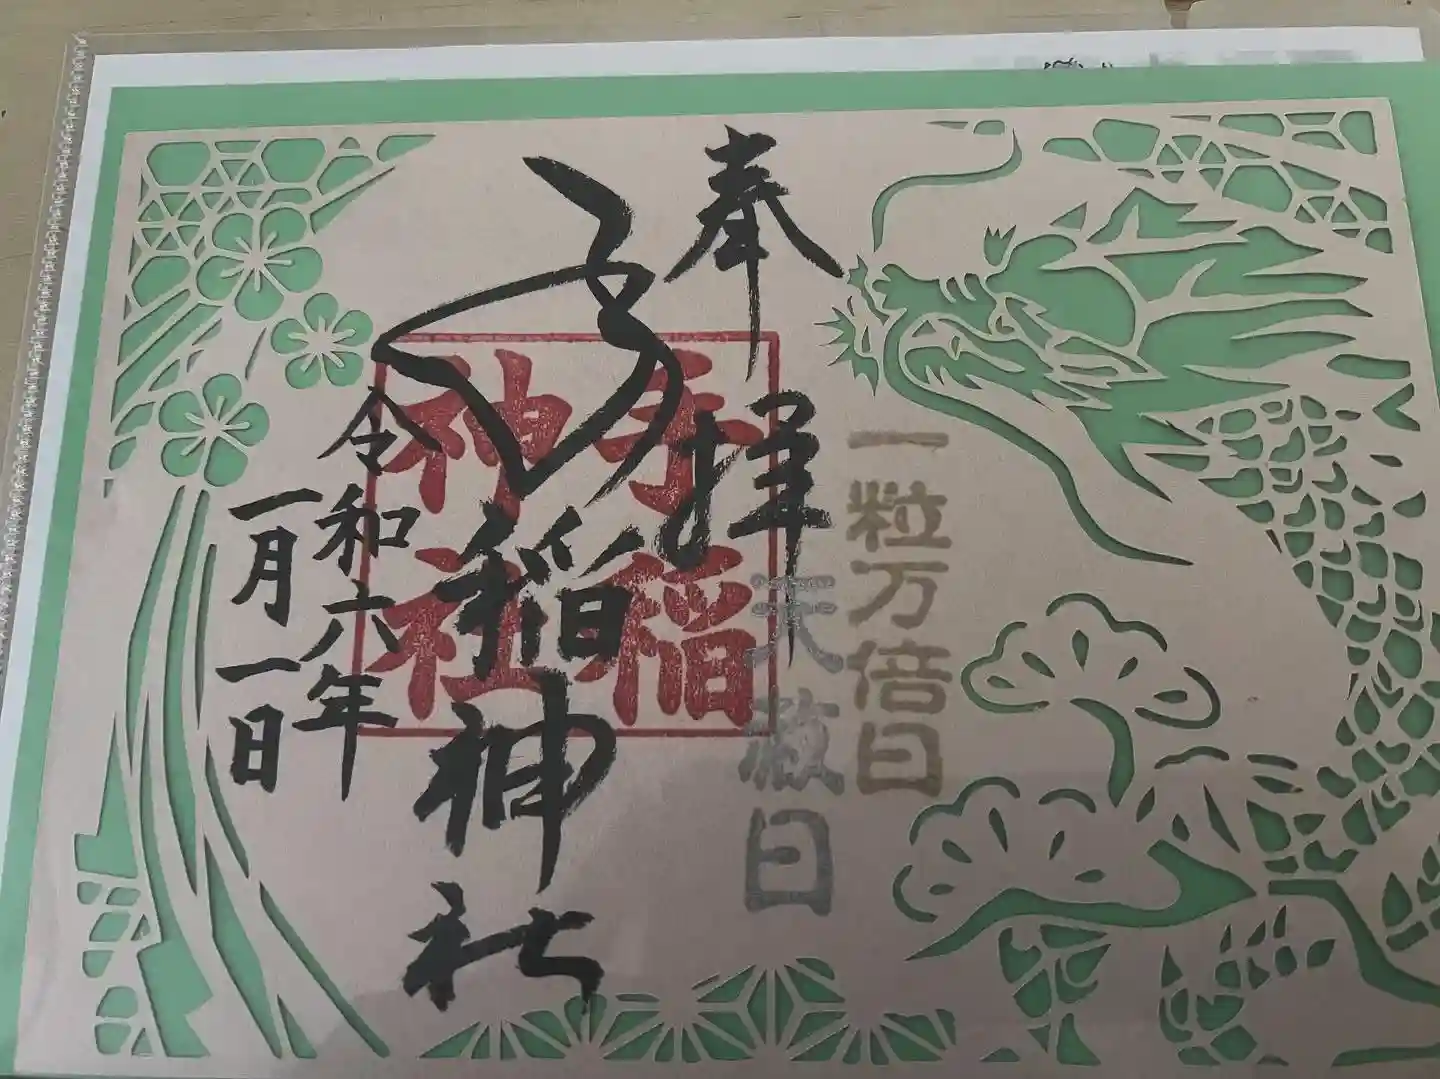 一粒万倍日
天赦日
奉拝
手稲神社
手稲
神社
令和六年
一月一日